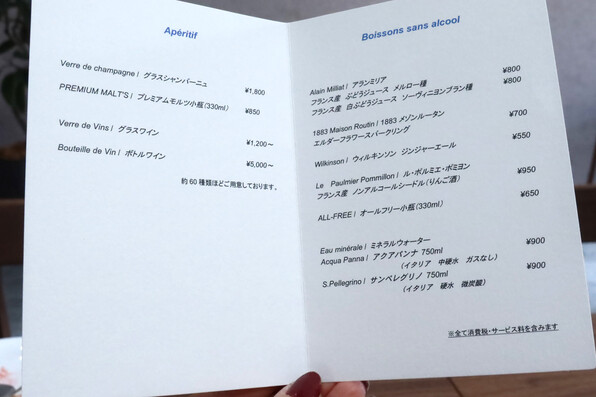 Apéritif
Verre de champagne / グラスシャンパーニュ ¥1,800
PREMIUM MALT'S / プレミアムモルツ小瓶(330ml) ¥850
Verre de Vins / グラスワイン ¥1,200~
Bouteille de Vin / ボトルワイン ¥5,000~
約60種類ほどご用意しております。
Boissons sans alcool
Alain Milliat / アランミリア
フランス産 ぶどうジュース メルロー種 ¥800
フランス産 白ぶどうジュース ソーヴィニヨンブラン種 ¥800
1883 Maison Routin / 1883 メゾンルータン ¥700
エルダーフラワースパークリング
Wilkinson / ウィルキンソン ジンジャーエール ¥550
Le Paulmier Pommillon / ル・ポルミエ・ポミヨン ¥950
フランス産 ノンアルコールシードル(りんご酒)
ALL-FREE / オールフリー小瓶(330ml) ¥650
Eau minérale / ミネラルウォーター
Acqua Panna / アクアパンナ 750ml ¥900
(イタリア 中硬水 ガスなし)
S.Pellegrino / サンペレグリノ 750ml ¥900
(イタリア 硬水 微炭酸)
※全て消費税・サービス料を含みます